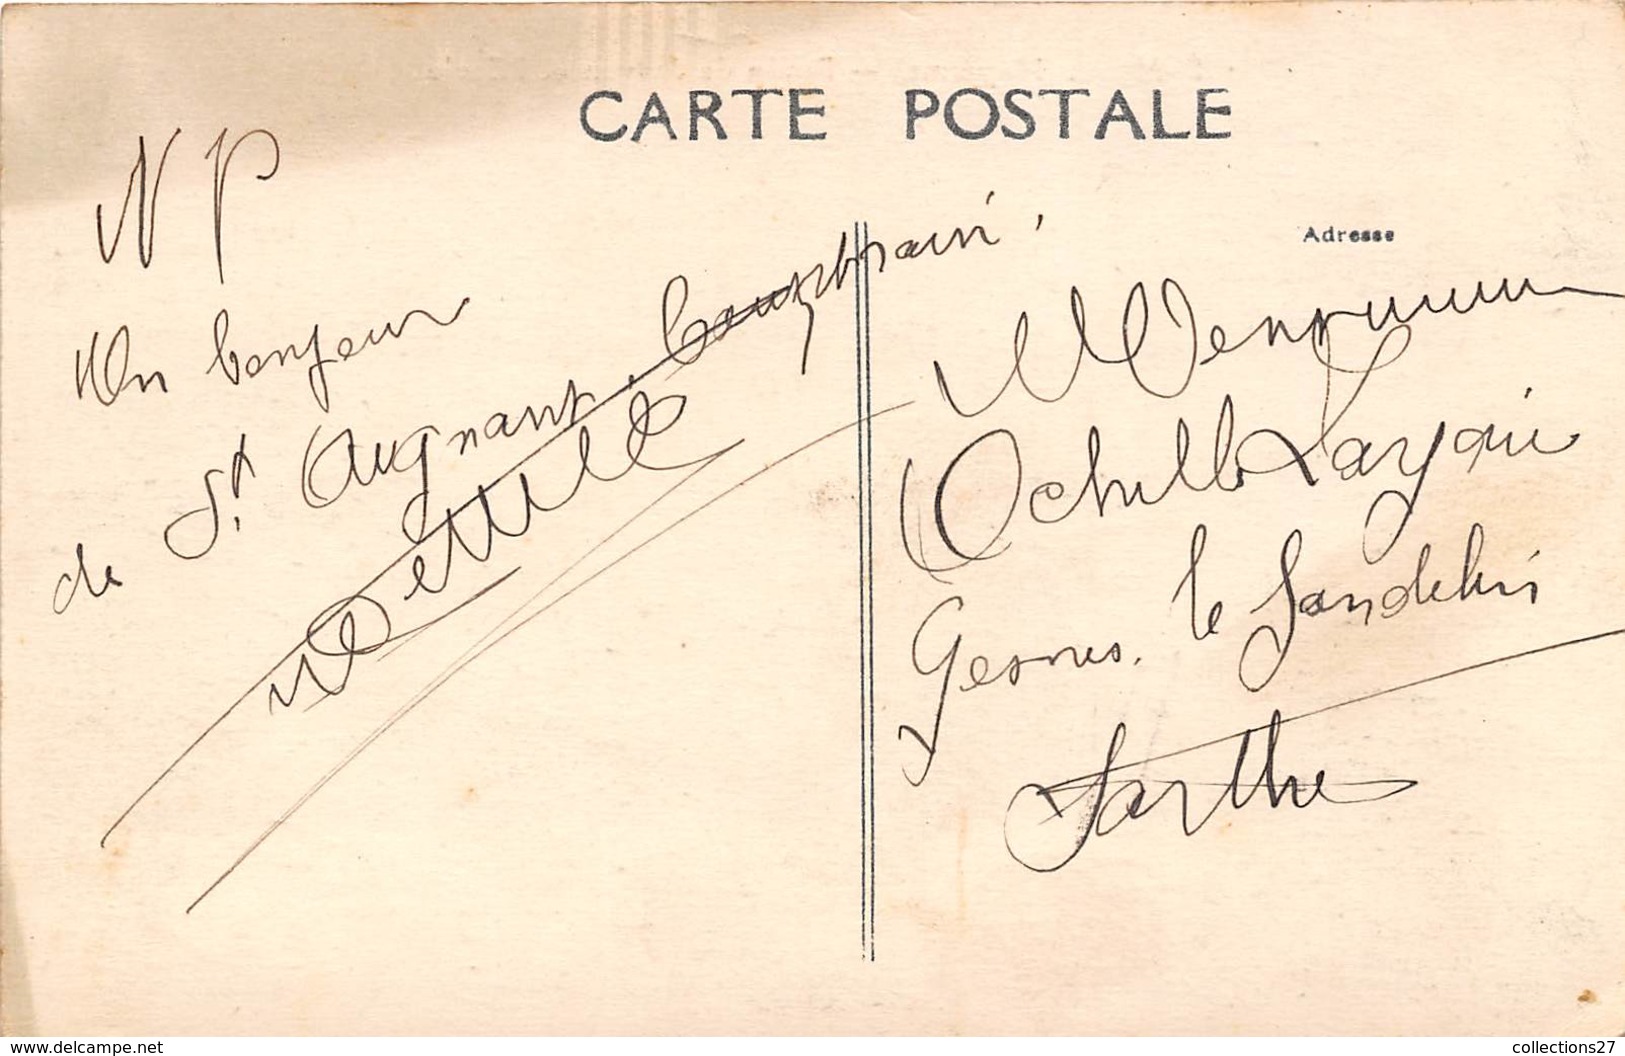 CARTE POSTALE
N P
Un bonjour
de St Aignant,
Adresse
Achille
Gesnes. le Gandelin
Sarthe
www.delcampe.net
collections27